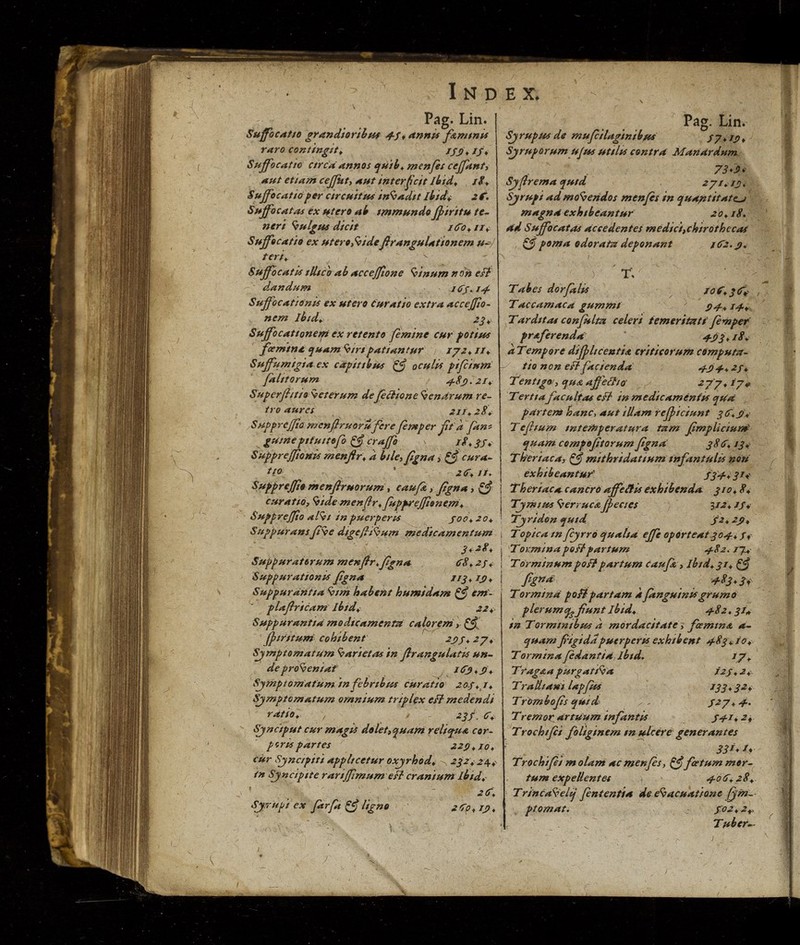 INDEX.
Pag. Lin.
Suffocatio grandioribus 45. annis fæminis
raro contingit. 159. 15.
Suffocatio circa annos quib. menses cessant,
aut etiam cessut, aut interficit Ibid. 18.
Suffocatio per circuitus invadit Ibid. 26.
Suffocatas ex utero ab immundo spiritu te-
neri vulgus dicit 160. 11.
Suffocatio ex utero, vide strangulationem u-
teri.
Suffocatis illico ab accessione vinum non est
dandum 165. 14
Suffocationis ex utero curatio extra accessio-
nem Ibid. 23.
Suffocationem ex retento semine cur potius
fœminæ quam viri patiantur 172. 11.
Suffumigia ex capitibus & oculis piscium
salitorum 489. 21.
Superstitio veterum de sectione venarum re-
tro aures 211. 28.
Suppressio menstruorū fere semper fit à san-
guine pituitoso & crasso 18. 35.
Suppressionis menstr. à bile, signa, & cura-
tio 26. 11.
Suppressio menstruorum, causæ, signa, &
curatio, vide menstr. suppressionem.
Suppressio alvi in puerperis 500. 20.
Suppurans sive digestivum medicamentum
3. 28.
Suppuratorum menstr. signa 68. 25.
Suppurationis signa 113. 19.
Suppurantia vim habent humidam & em-
plastricam Ibid. 22.
Suppurantia medicamenta calorem, &
spiritum cohibent 295. 27.
Symptomatum varietas in strangulatis un-
de proveniat 169. 9.
Symptomatum in febribus curatio 205. 1.
Symptomatum omnium triplex est medendi
ratio. 235. 6.
Synciput cur magis dolet, quam reliquæ cor-
poris partes 229. 10.
cur Syncipiti applicetur oxyrhod. 232. 24.
in Syncipite rarissimum est cranium Ibid.
26.
Syrupi ex farfa & ligno 260. 19.
Pag. Lin.
Syrupus de muscilaginibus 57. 19.
Syruporum usus utilis contra Manardum
73. 9.
Systrema quid 271. 19.
Syrupi ad movendos menses in quantitate
magna exhibeantur 20. 18.
ad Suffocatas accedentes medici, chirothecas
& poma odorata deponant 162. 9.
T.
Tabes dorsalis 106. 36.
Taccamaca gummi 94. 14.
Tarditas consulta celeri temeritati semper
præferenda 493. 18.
à Tempore displicentia criticorum computa-
tio non est facienda 494. 25.
Tentigo, quæ affectio 277. 17.
Tertia facultas est in medicamentis quæ
partem hanc, aut illam respiciunt 36. 9.
Testium intemperatura tam simplicium
quam compositorum signa 386. 13.
Theriaca, & mithridatium infantulis non
exhibeantur 534. 31.
Theriaca cancro affectis exhibenda 310. 8.
Tymius verrucæ species 312. 15.
Tyridon quid 52. 29.
Topica in scyrro qualia esse oporteat 304. 5.
Tormina post partum 482. 17.
Torminum post partum causæ, Ibid. 31. &
signa 483. 3.
Tormina post partum à sanguinis grumo
plerumq; fiunt Ibid. 482. 31.
in Torminibus à mordacitate, fœminæ a-
quam frigidā puerperis exhibent 483. 10.
Tormina sedantia Ibid. 17.
Tragæa purgativa 125. 2.
Tralliani lapsus 133. 32.
Trombosis quid 527. 4.
Tremor artuum infantis 541. 2.
Trochisci soliginem in ulcere generantes
331. 1.
Trochisci molam ac menses, & fœtum mor-
tum expellentes 406. 28.
Trincavelij sententia de evacuatione sym-
ptomat. 502. 2.
Tuber-